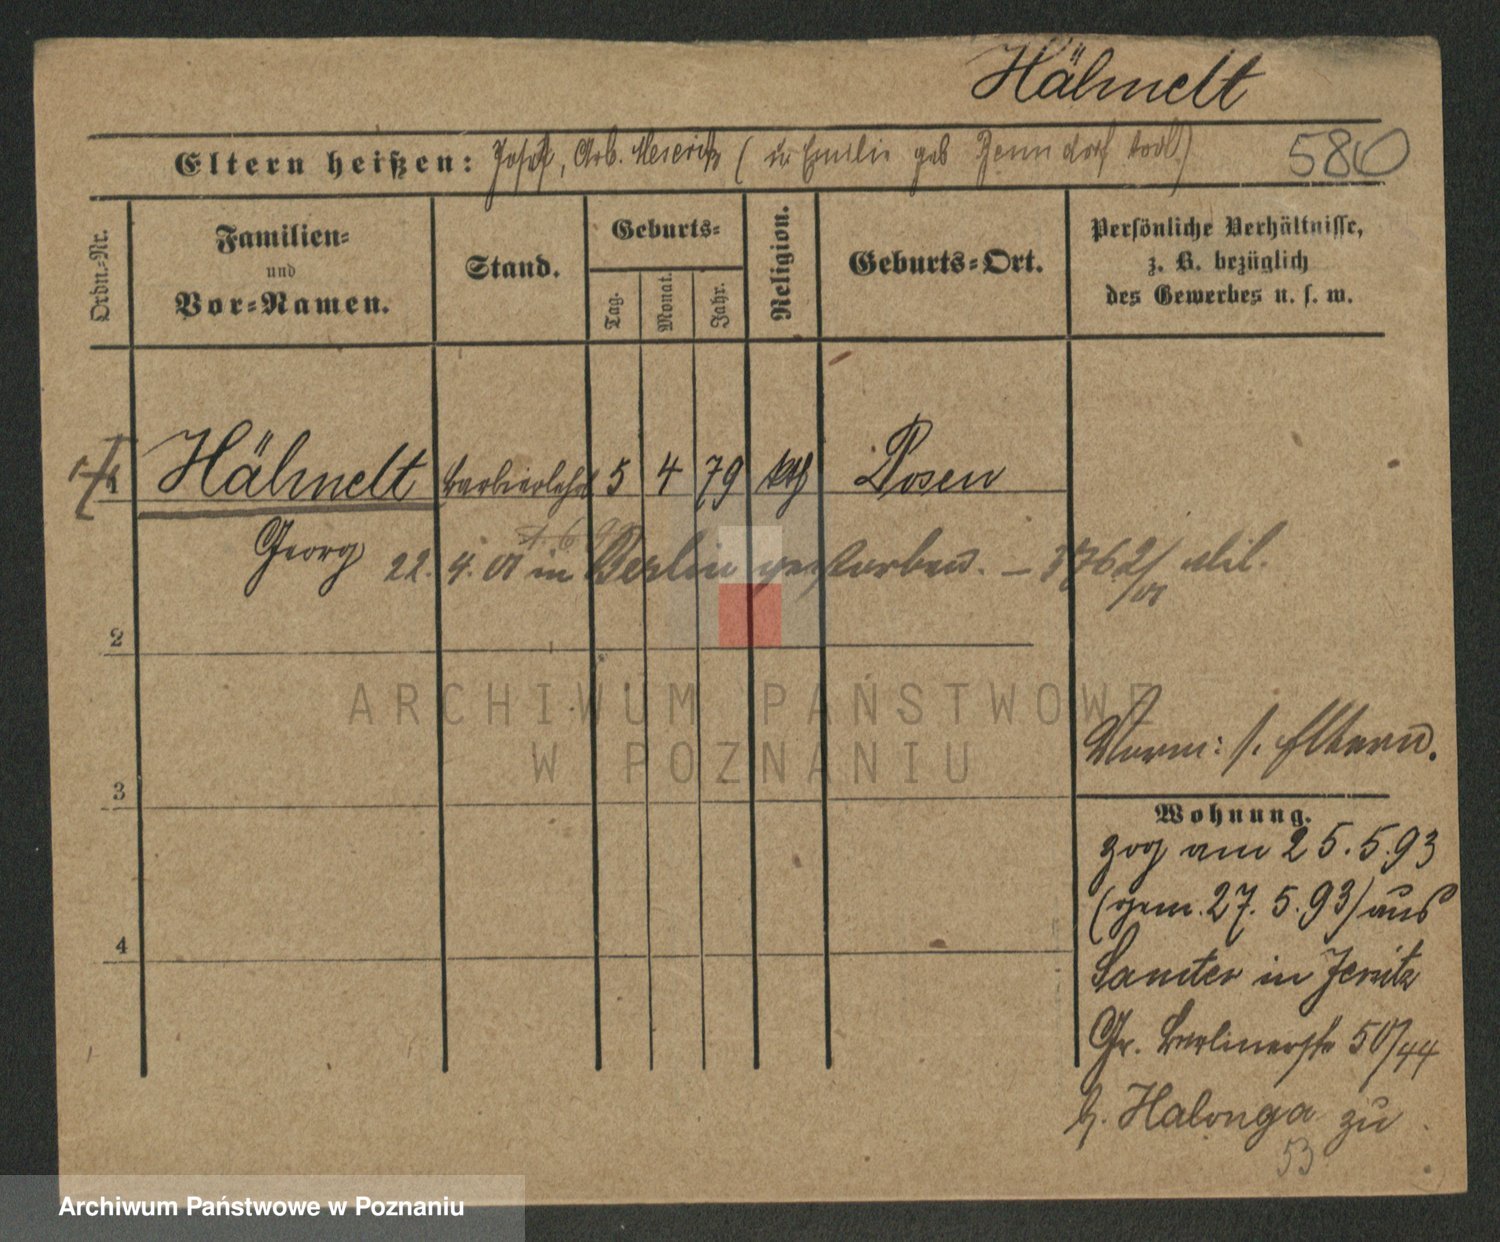 Hähnelt
Eltern heißen: Josef, Arb. Meseritz (u Emilie geb Renndorf todt.)
580
Ordn.-Nr.
Familien-
und
Vor-Namen.
Stand.
Geburts-
Tag.
Monat.
Jahr.
Religion.
Geburts-Ort.
Persönliche Verhältnisse,
z. B. bezüglich
des Gewerbes u. s. w.
1 Hähnelt Barbierlehrl 5 4 79 kth Posen
Georg 22. 4. 01 in Berlin gestorben. – 3762/01 Mil.
2
3
4
Vorm: s. Eltern.
Wohnung.
zog am 25.5.93
(gem. 27.5.93) aus
Samter in Jersitz
Gr. Berlinerstr 50/44
b. Halonga zu
53
ARCHIWUM PAŃSTWOWE
W POZNANIU
Archiwum Państwowe w Poznaniu